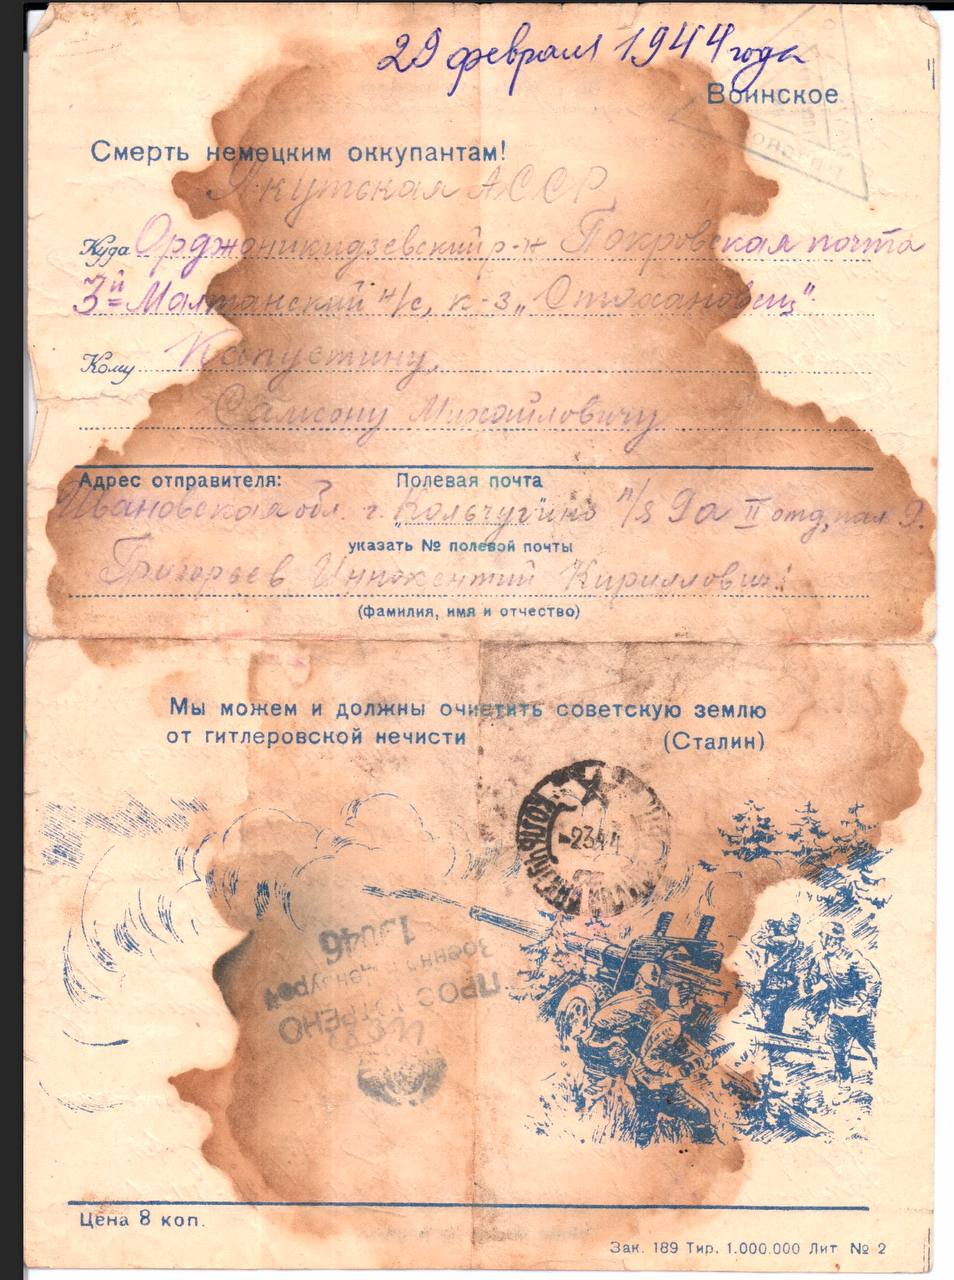 29 февраля 1944 года
Воинское
Смерть немецким оккупантам!
Якутская АССР
Куда Орджоникидзевский р-н Покровская почта
3й Малтанский н/с, к-з „Стахановец"
Кому Капустину,
Самсону Михайловичу
Адрес отправителя: Полевая почта
Ивановская обл. г. „Кольчугино" п/я 9а II отд, пал 9.
указать № полевой почты
Григорьев Иннокентий Кириллович
(фамилия, имя и отчество)
Мы можем и должны очистить советскую землю
от гитлеровской нечисти (Сталин)
-2344
ПРОСМОТРЕНО
Военной Цензурой
13046
Цена 8 коп.
Зак. 189 Тир. 1.000.000 Лит № 2